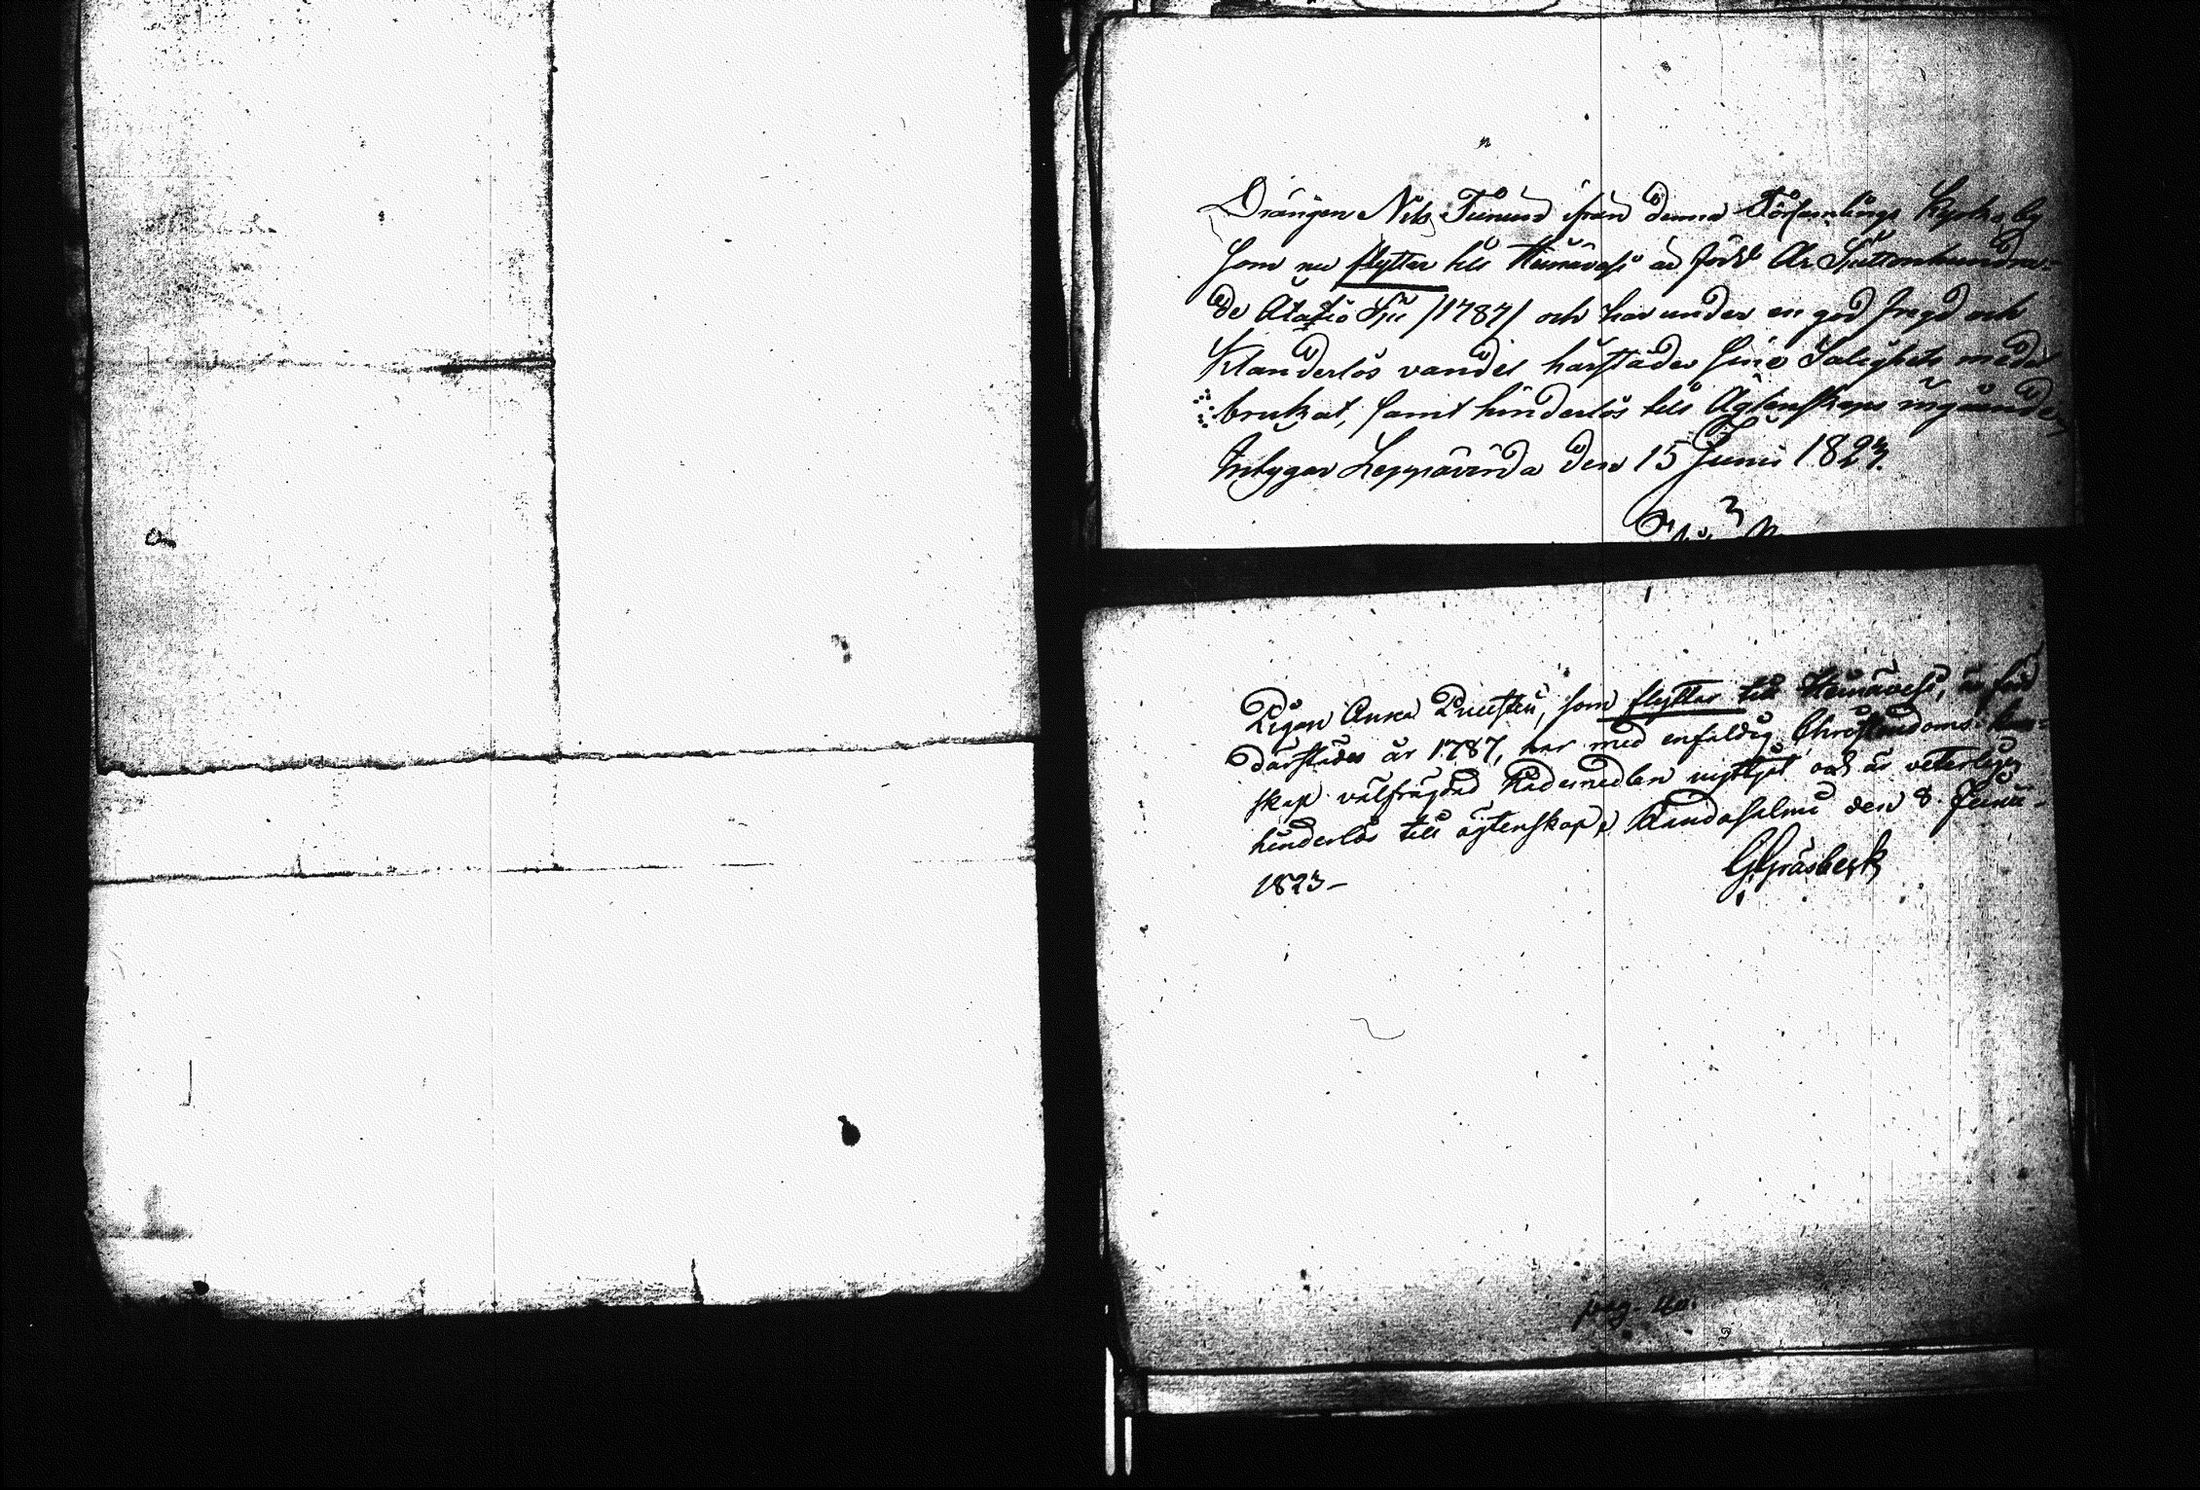 Drängen Nils Tirund ifrån denna Församlings Kyrkoby
som nu flyttar till Heinävesi är född År Sjuttonhundra-
de Åtatio Sju /1787/ och har under en god fregd och
Klanderlös vandel härstädes sine Salighets medel
brukat, samt hinderlös till Ägtenskaps ingående,
Intygar Leppävirda den 15 Junii 1823.
Pigan Anna Pruustin, som flyttar till Heinävesi, är född
därstädes år 1787, har med enfaldig Christendoms kun-
skap välfrägdad Nådemedlen nyttjat och är veterligen
hinderlös till ägtenskap, Randasalmi den 8. Junii
1823-
G. Gräsbeck
pag.